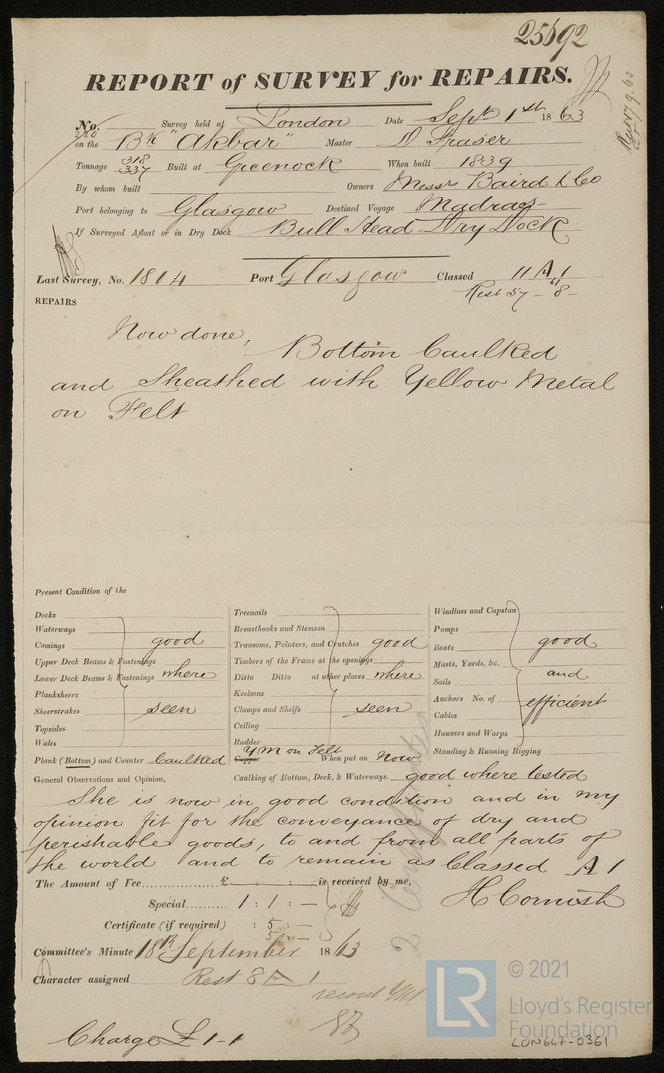 25692
REPORT of SURVEY for REPAIRS.
No. Survey held at London Date Sept 1st 1863
on the Bk "Akbar" Master D Fraser
Tonnage 318 337 Built at Greenock When built 1839
By whom built Owners Messrs Baird & Co
Port belonging to Glasgow Destined Voyage Madras
If Surveyed Afloat or in Dry Dock Bull Head Dry Dock
Last Survey, No. 1804 Port Glasgow Classed 11 A 1
Rest 57 - 8 -
REPAIRS
Now done, Bottom Caulked
and Sheathed with Yellow Metal
on Felt
Present Condition of the
Decks
Waterways
Comings
Upper Deck Beams & Fastenings
Lower Deck Beams & Fastenings
Planksheers
Sheerstrakes
Topsides
Wales
good
where
seen
Plank (Bottom) and Counter Caulked
Treenails
Breasthooks and Stemson
Transoms, Pointers, and Crutches
Timbers of the Frame at the openings
Ditto Ditto at other places
Keelsons
Clamps and Shelfs
Ceiling
Rudder
good
where
seen
Copper YM on Felt When put on Now
Windlass and Capstan
Pumps
Boats
Masts, Yards, &c.
Sails
Anchors No. of
Cables
Hawsers and Warps
Standing & Running Rigging
good
and
efficient
General Observations and Opinion, Caulking of Bottom, Deck, & Waterways. good where tested
She is now in good condition and in my
opinion fit for the conveyance of dry and
perishable goods, to and from all parts of
the world and to remain as Classed A 1
The Amount of Fee £ : : is received by me,
Special 1 : 1 : — H Cornish
Certificate (if required) : 5 : —
5 : —
Committee's Minute 18th September 1863
Character assigned Rest 8 A 1
Charge £ 1-1
LR
© 2021
Lloyd's Register
Foundation
LON647-0361